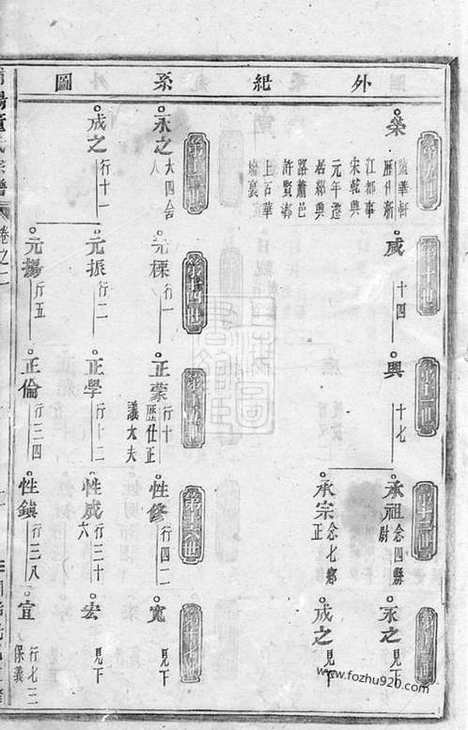 外紀系圖
第九世
榮
號華軒
歷仕新
江都事
宋乾興
元年遷
居紹興
路蕭邑
許賢鄉
上百華
第十世
咸
十四
第十一世
興
十七
第十二世
承祖
念四縣
尉
承宗
念七鄉
正
第十三世
永之
見下
成之
見下
第十三世
永之
大四會
八
成之
行十一
第十四世
元標
行一
元振
行二
元揚
行五
第十五世
正蒙
行十
歷仕正
議大夫
正學
行十二
正倫
行二四
第十六世
性修
行四二
性咸
行三十
六
性鎮
行三八
第十七世
寬
見下
宏
見下
宣
行七二
保義
宗譜
卷之二
www.fozhu920.com